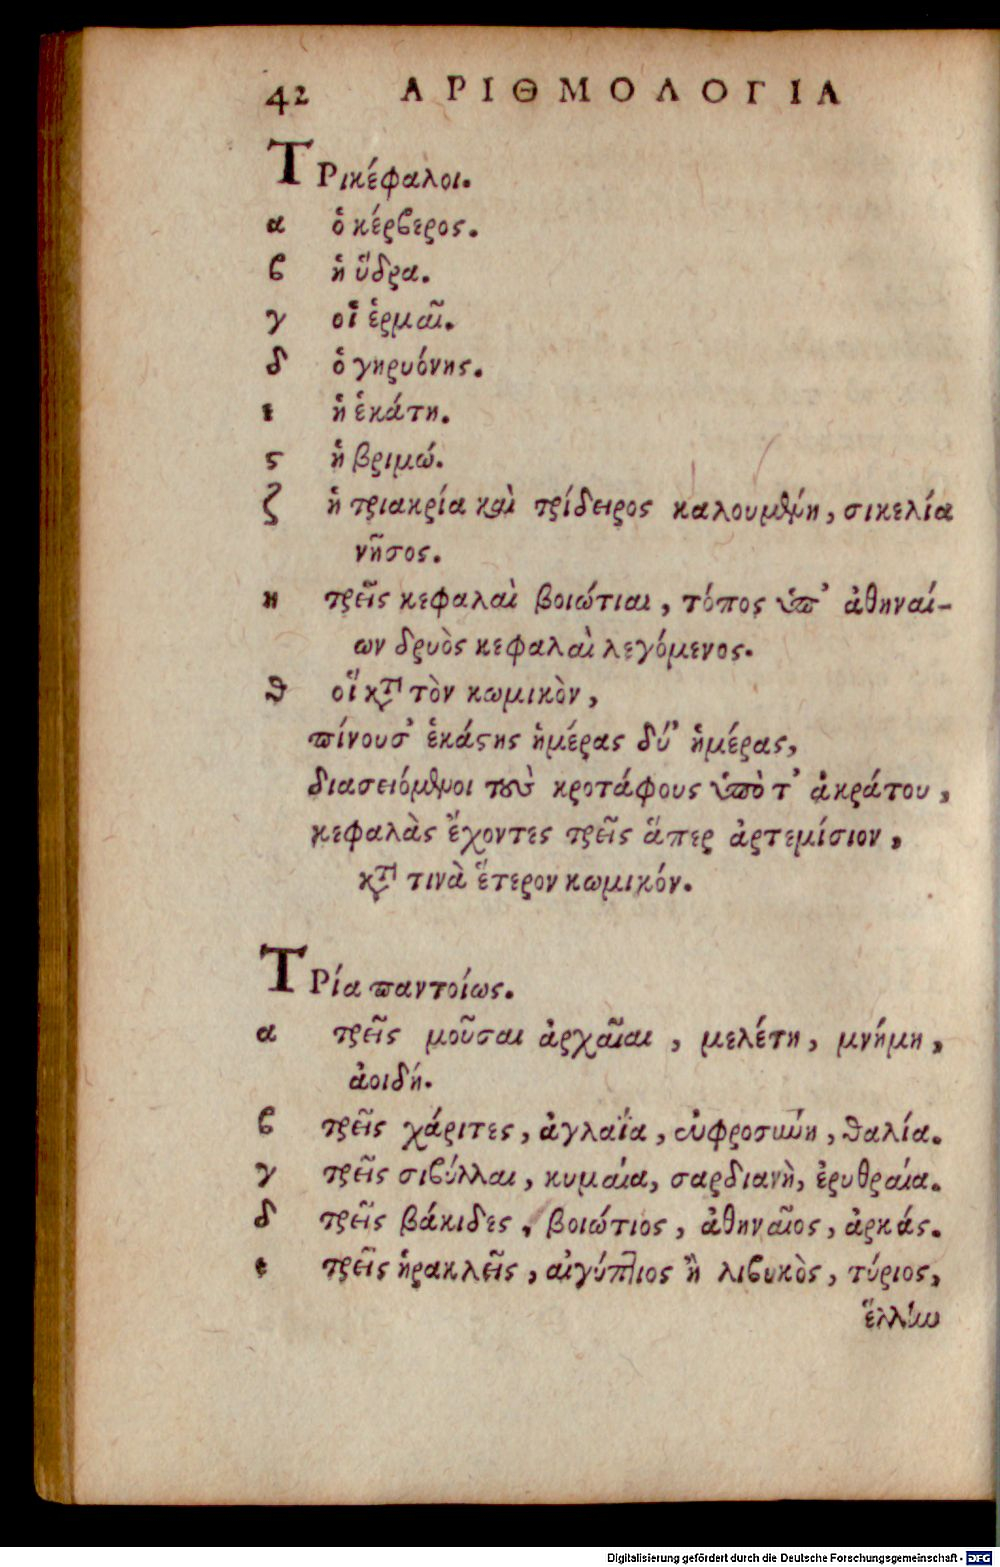 42 ΑΡΙΘΜΟΛΟΓΙΑ
ΤΡικέφαλοι.
α ὁ κέρβερος.
ϐ ἡ ὕδρα.
γ οἱ ἑρμαῖ.
δ ὁ γηρυόνης.
ε ἡ ἑκάτη.
ϛ ἡ βριμώ.
ζ ἡ τριακρία καὶ τρίδειρος καλουμένη, σικελία
νῆσος.
η τρεῖς κεφαλαὶ βοιώτιαι, τόπος ὑπ' ἀθηναί-
ων δρυὸς κεφαλαὶ λεγόμενος.
θ οἵ κτ τὸν κωμικὸν,
πίνουσ' ἑκάστης ἡμέρας δύ' ἡμέρας,
διασειόμενοι τοὺς κροτάφους ὑπὸ τ' ἀκράτου,
κεφαλὰς ἔχοντες τρεῖς ἅπερ ἀρτεμίσιον,
κτ τινὰ ἕτερον κωμικόν.
ΤΡία παντοίως.
α τρεῖς μοῦσαι ἀρχαῖαι, μελέτη, μνήμη,
ἀοιδή.
ϐ τρεῖς χάριτες, ἀγλαΐα, εὐφροσύνη, θαλία.
γ τρεῖς σιβύλλαι, κυμαία, σαρδιανὴ, ἐρυθραία.
δ τρεῖς βάκιδες, βοιώτιος, ἀθηναῖος, ἀρκάς.
ε τρεῖς ἡρακλεῖς, αἰγύπτιος ἢ λιβυκὸς, τύριος,
ἕλλην
Digitalisierung gefördert durch die Deutsche Forschungsgemeinschaft - DFG